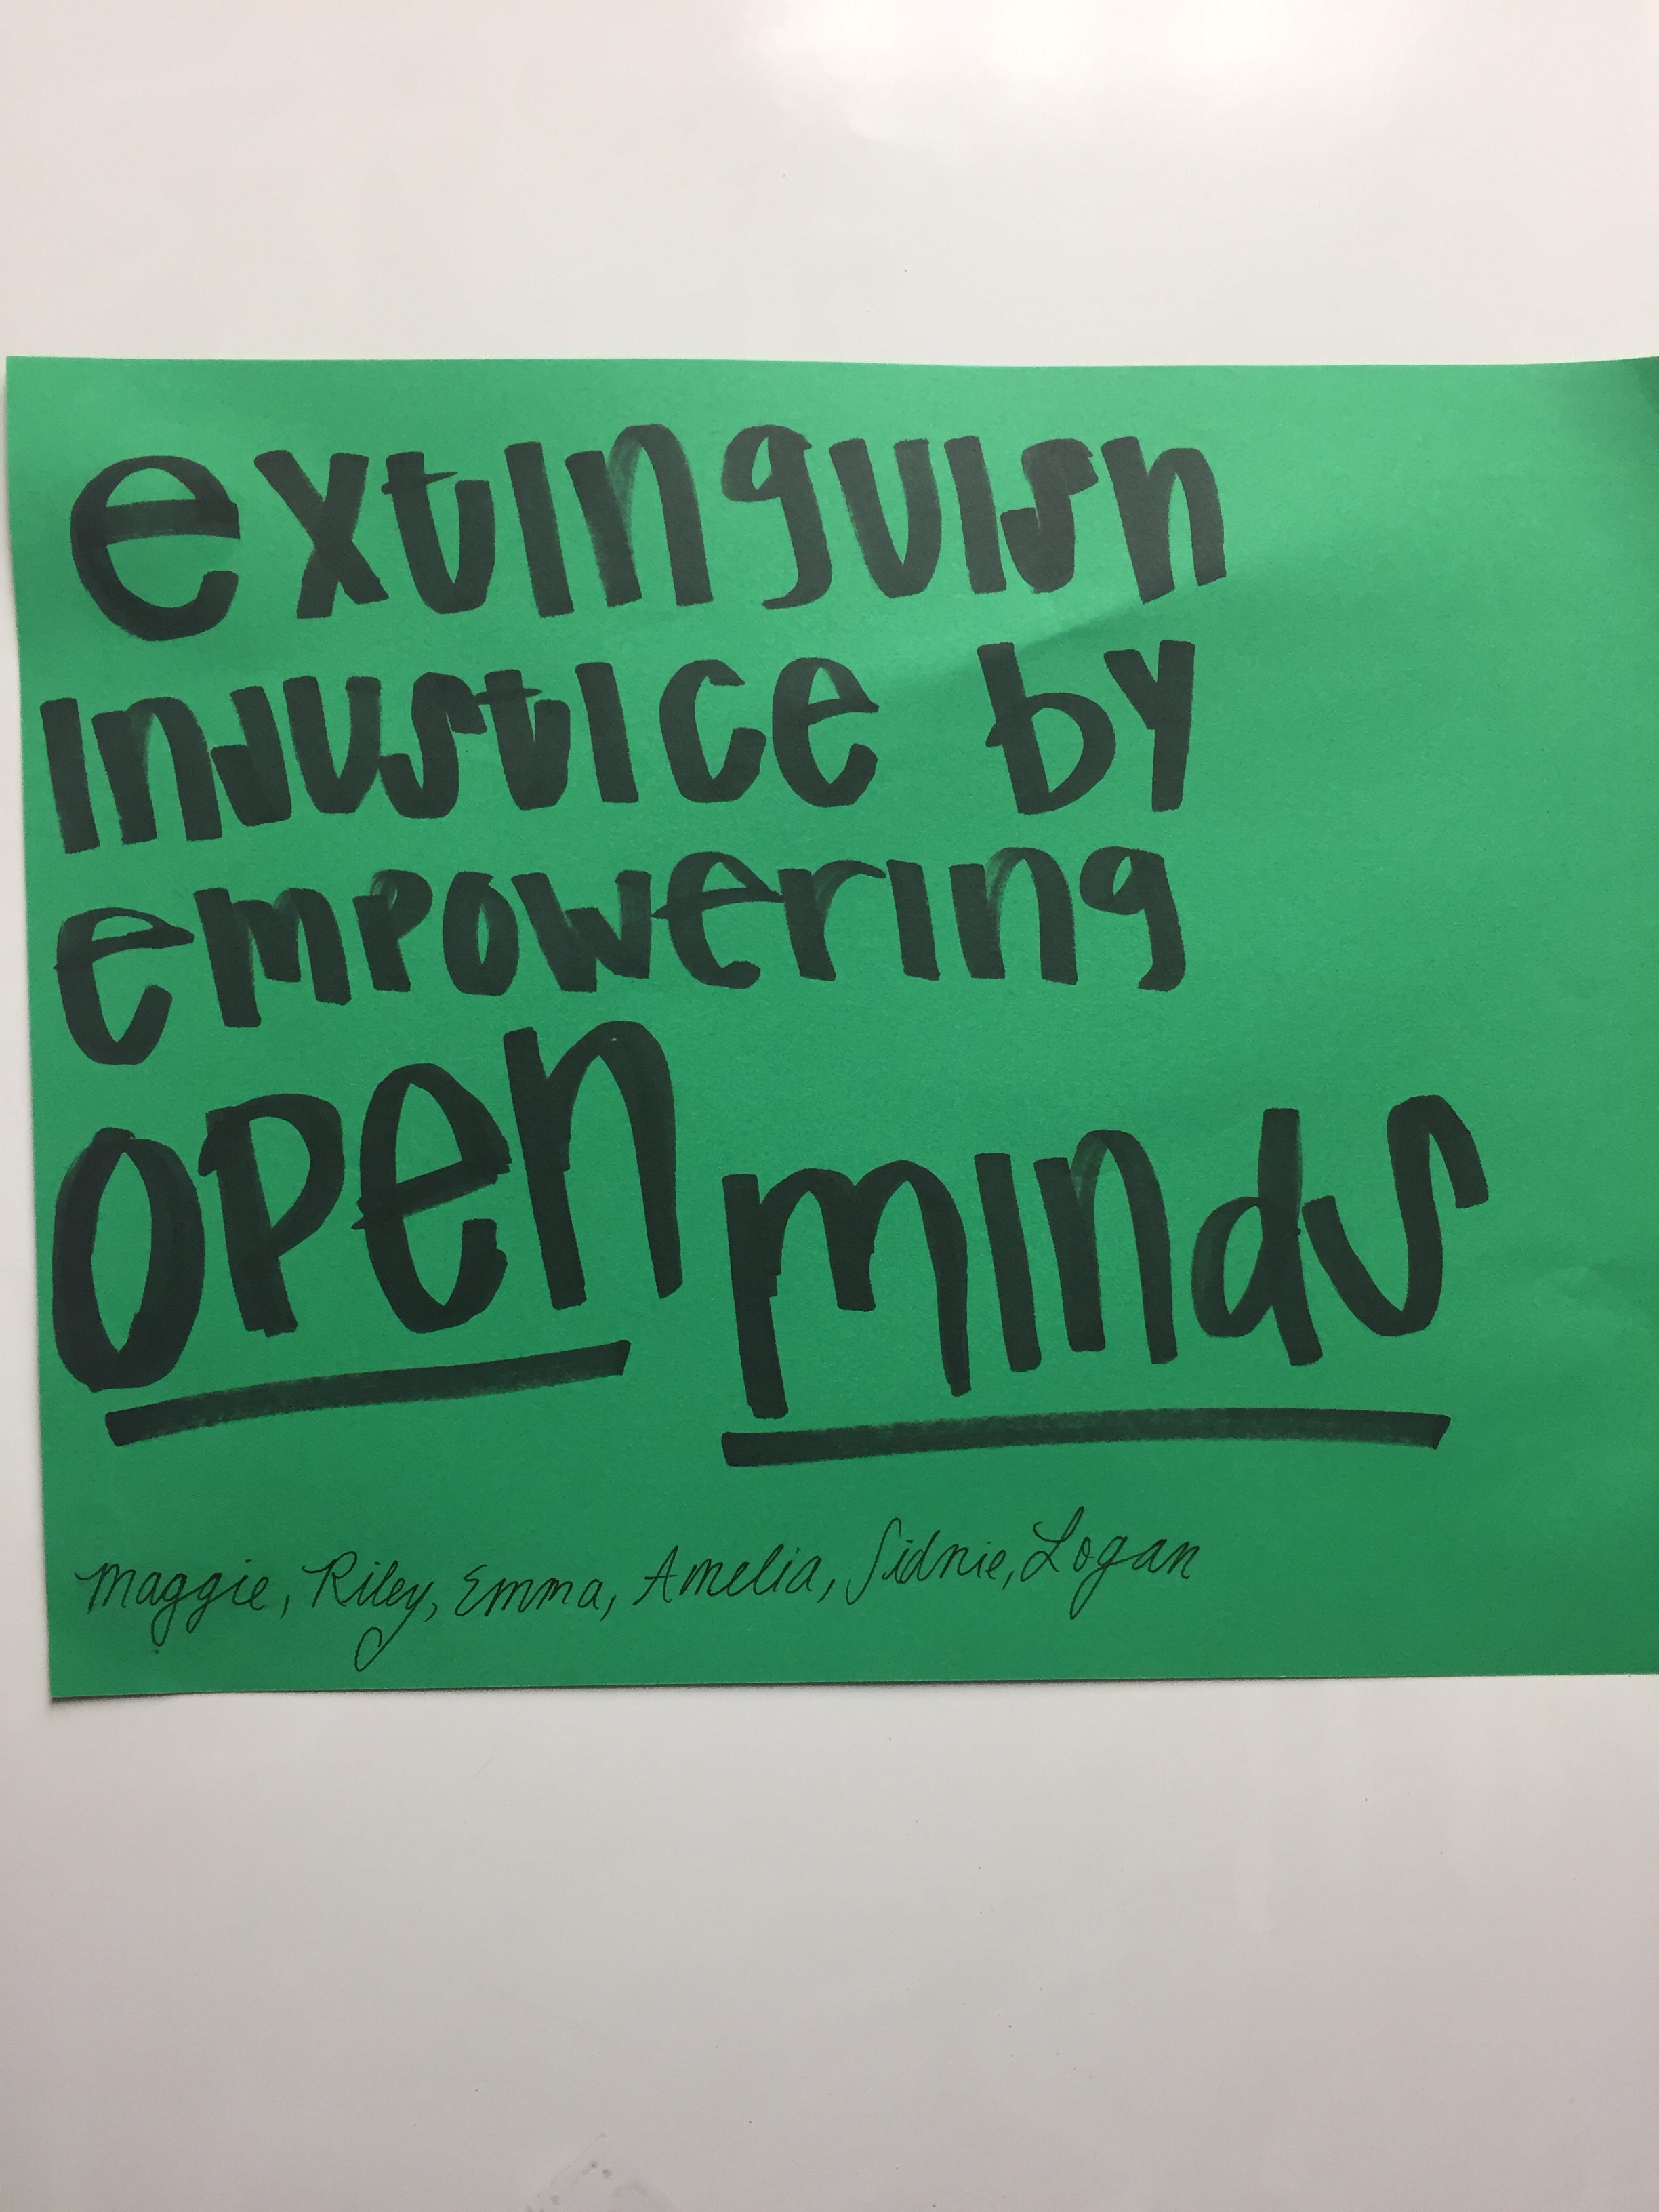 extinguish
injustice by
empowering
open minds
Maggie, Riley, Emma, Amelia, Sidnie, Logan